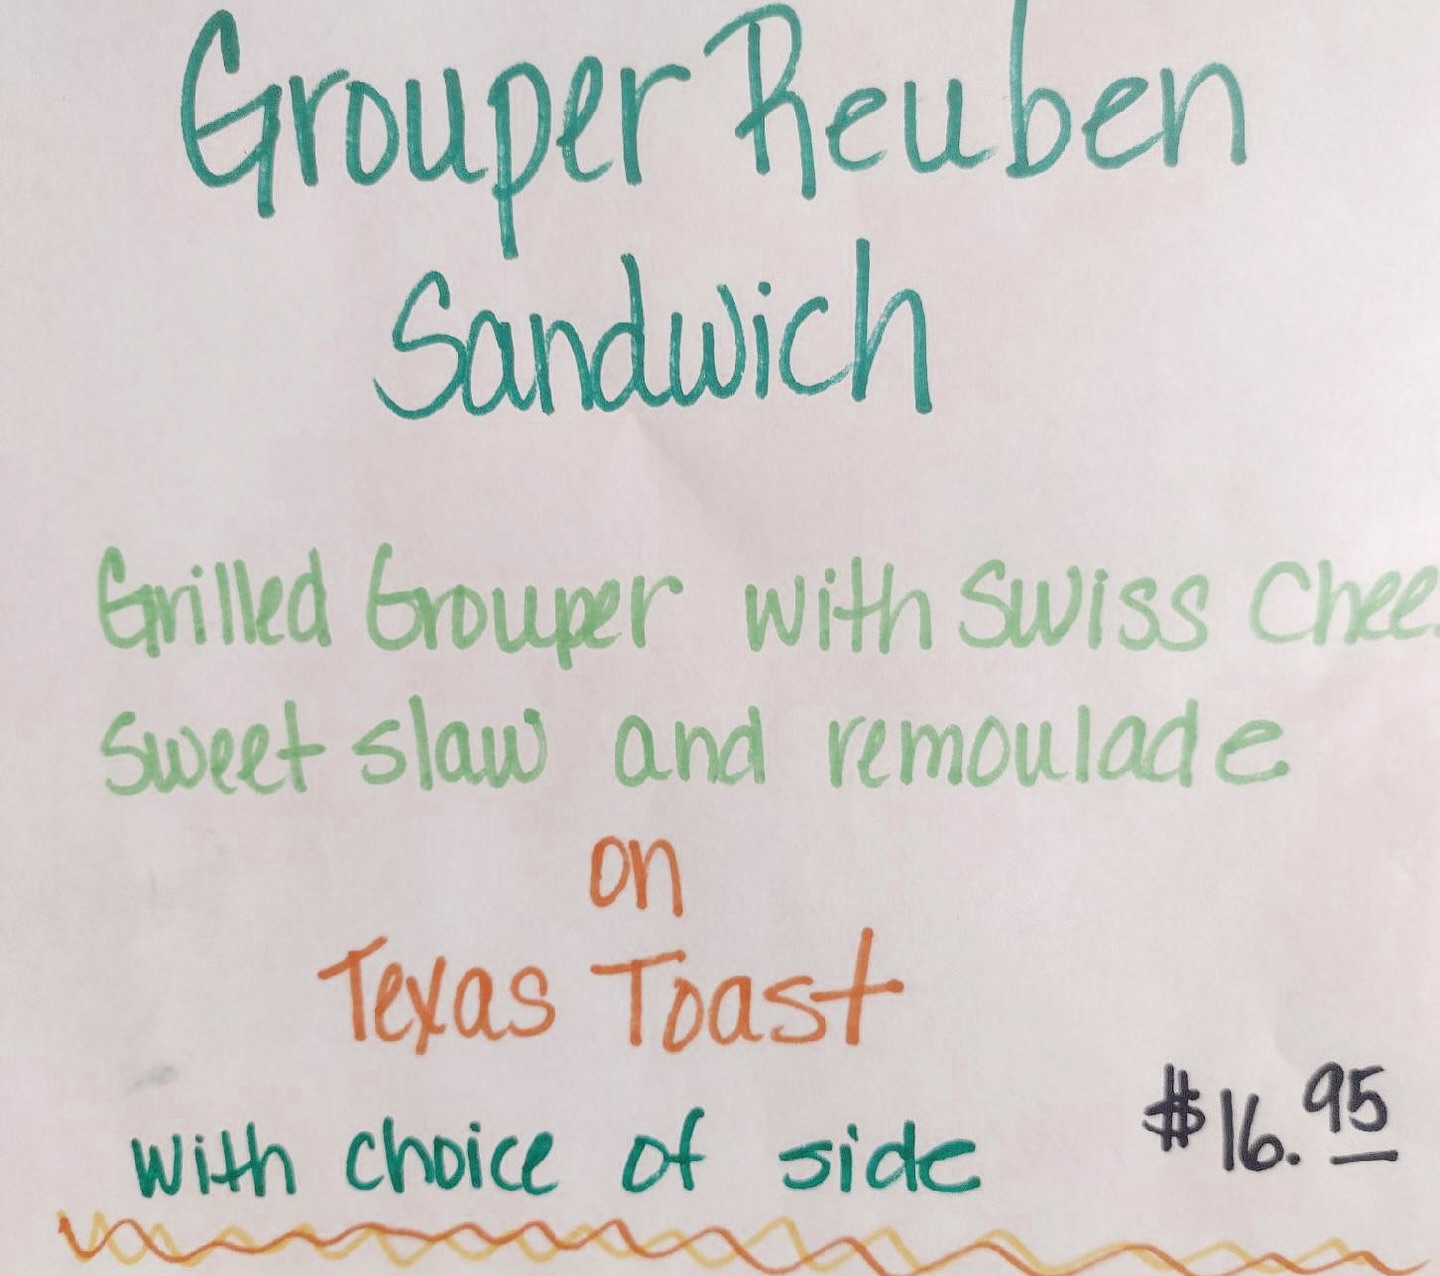 Grouper Reuben
Sandwich
Grilled Grouper with Swiss Chee
Sweet slaw and remoulade
on
Texas Toast
with choice of side
$16.95